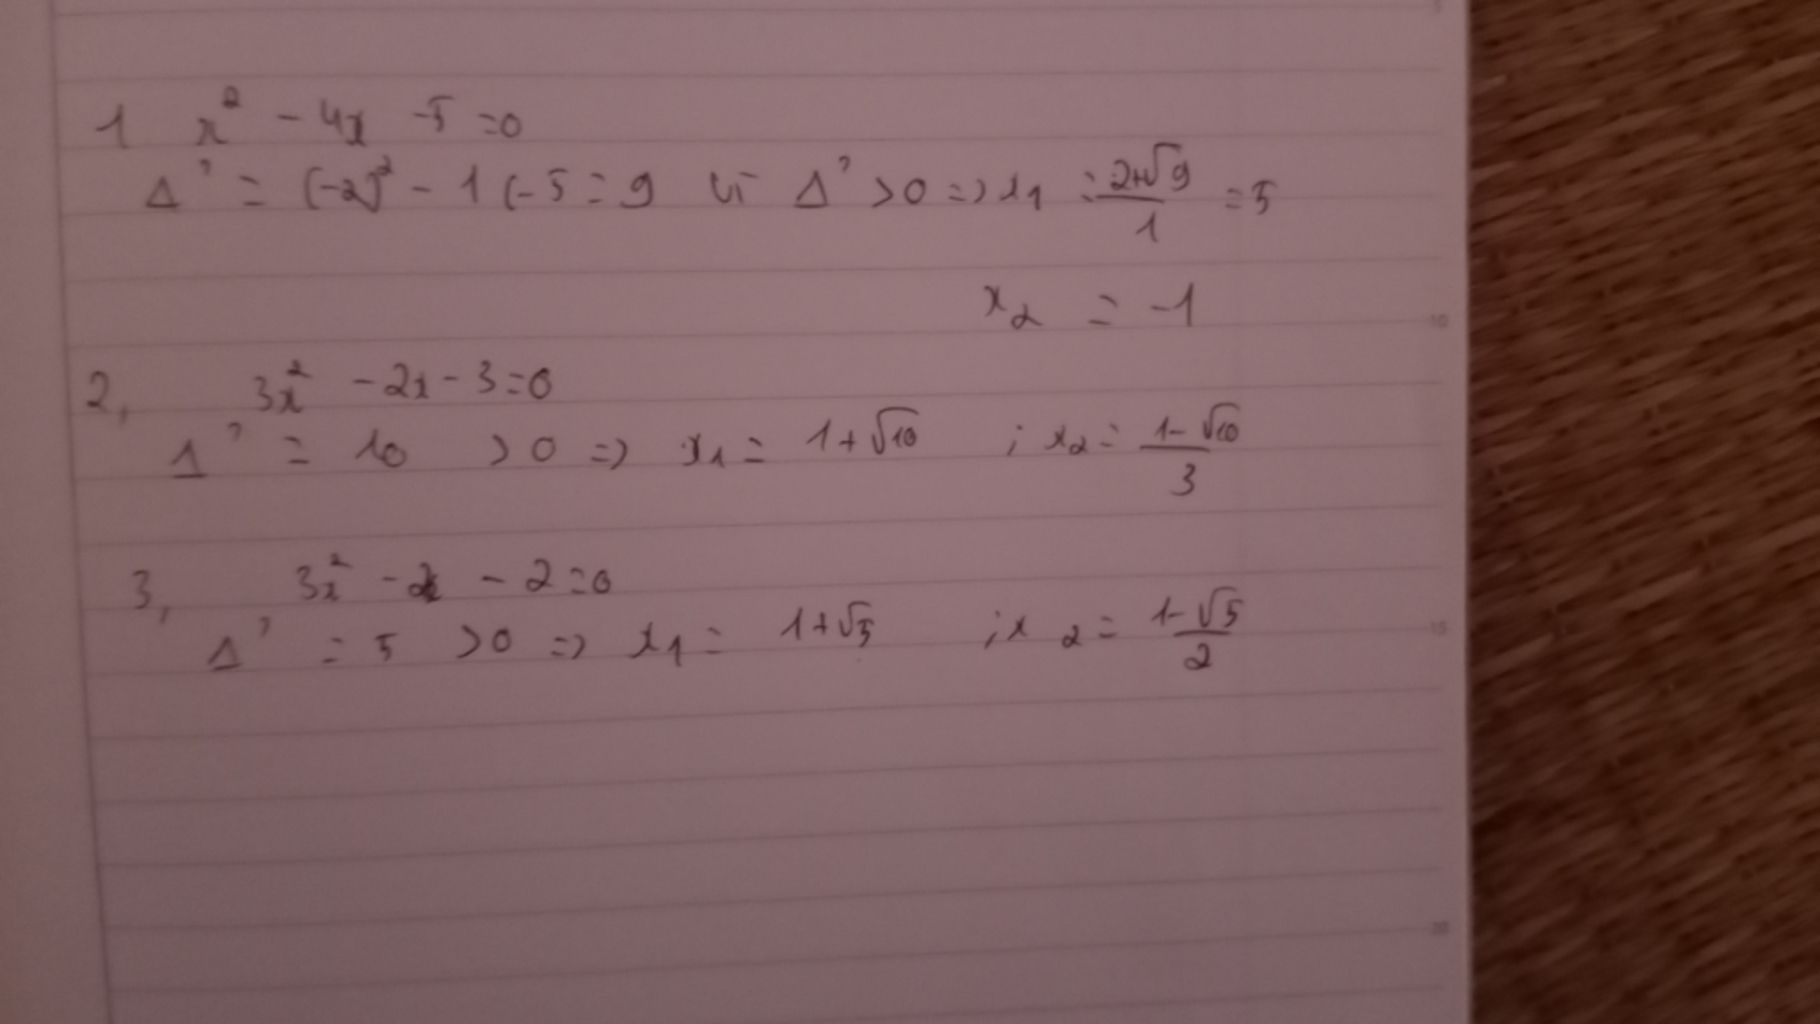 1 x² - 4x -5 =0
Δ' = (-2)² - 1 (-5 = 9 vì Δ' >0 => x₁ = (2+√9)/1 = 5
x₂ = -1
2, 3x² - 2x - 3 = 0
Δ' = 10 >0 => x₁ = 1+√10 ; x₂ = (1-√10)/3
3, 3x² - 2x - 2 = 0
Δ' = 5 >0 => x₁ = 1+√5 ; x₂ = (1-√5)/2
10
15
20